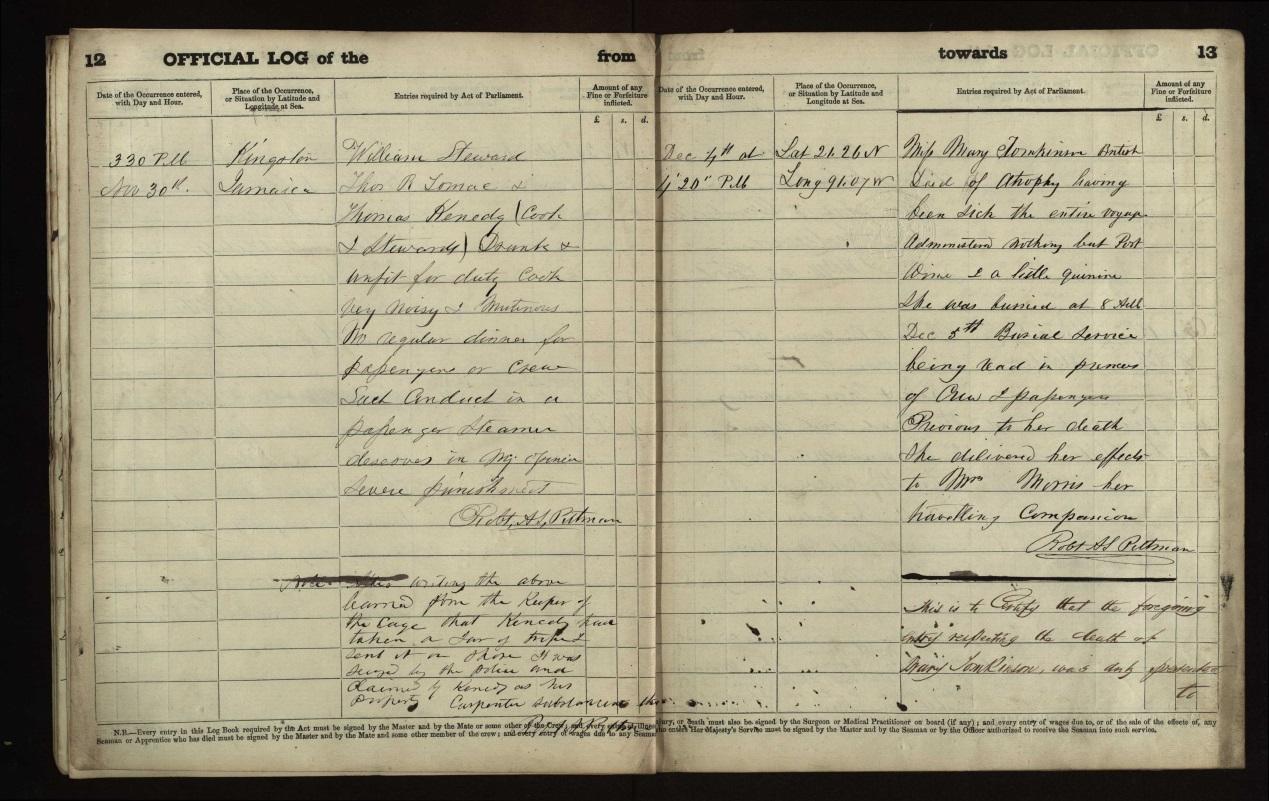 12 OFFICIAL LOG of the from
Date of the Occurrence entered, with Day and Hour.
Place of the Occurrence, or Situation by Latitude and Longitude at Sea.
Entries required by Act of Parliament.
Amount of any Fine or Forfeiture inflicted.
£ s. d.
3 30 P.M Kingston William Steward
Nov 30th. Jamaica Thos R Tomac &
Thomas Kenedy (Cook
& Stewards) Drunk &
unfit for duty Cook
very noisy & Mutinous
No regular dinner for
passengers or Crew
Such Conduct in a
passenger Steamer
deserves in my opinion
severe punishment
Robt AS Pittman
writing the above
learned from the Keeper of
the Cage that Kenedy had
taken a Jar of &
sent it on shore It was
seized by the police and
Claimed by Kenedy as his
property Carpenter
N.B.—Every entry in this Log Book required by the Act must be signed by the Master and by the Mate or some other of the Crew; and every entry of illness
Seaman or Apprentice who has died must be signed by the Master and by the Mate and some other member of the crew; and every entry of wages due to any Seaman
towards 13
Date of the Occurrence entered, with Day and Hour.
Place of the Occurrence, or Situation by Latitude and Longitude at Sea.
Entries required by Act of Parliament.
Amount of any Fine or Forfeiture inflicted.
£ s. d.
Dec 4th at Lat 21.26 N Miss Mary Tomkinson British
4 20" P.M Long 91.07 W Died of Atrophy having
been sick the entire voyage
Administered nothing but Port
Wine & a little quinine
She was buried at 8 AM
Dec 5th Burial Service
being read in presence
of Crew & passengers
Previous to her death
She delivered her effects
to Mrs Morris her
travelling Companion
Robt AS Pittman
This is to Certify that the foregoing
entry respecting the death of
Mary Tomkinson, was duly presented
to
injury, or death must also be signed by the Surgeon or Medical Practitioner on board (if any); and every entry of wages due to, or of the sale of the effects of, any
who enters Her Majesty's Service must be signed by the Master and by the Seaman or by the Officer authorized to receive the Seaman into such service.